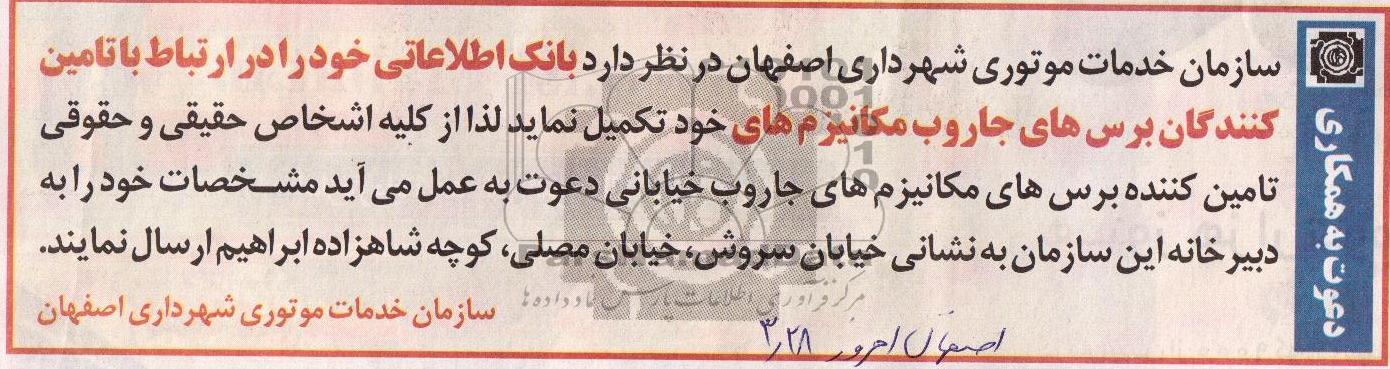 دعوت به همکاری
سازمان خدمات موتوری شهرداری اصفهان در نظر دارد بانک اطلاعاتی خود را در ارتباط با تامین
کنندگان برس های جاروب مکانیزم های خود تکمیل نماید لذا از کلیه اشخاص حقیقی و حقوقی
تامین کننده برس های مکانیزم های جاروب خیابانی دعوت به عمل می آید مشخصات خود را به
دبیرخانه این سازمان به نشانی خیابان سروش، خیابان مصلی، کوچه شاهزاده ابراهیم ارسال نمایند.
سازمان خدمات موتوری شهرداری اصفهان
اصفهان امروز ۳٫۲۸